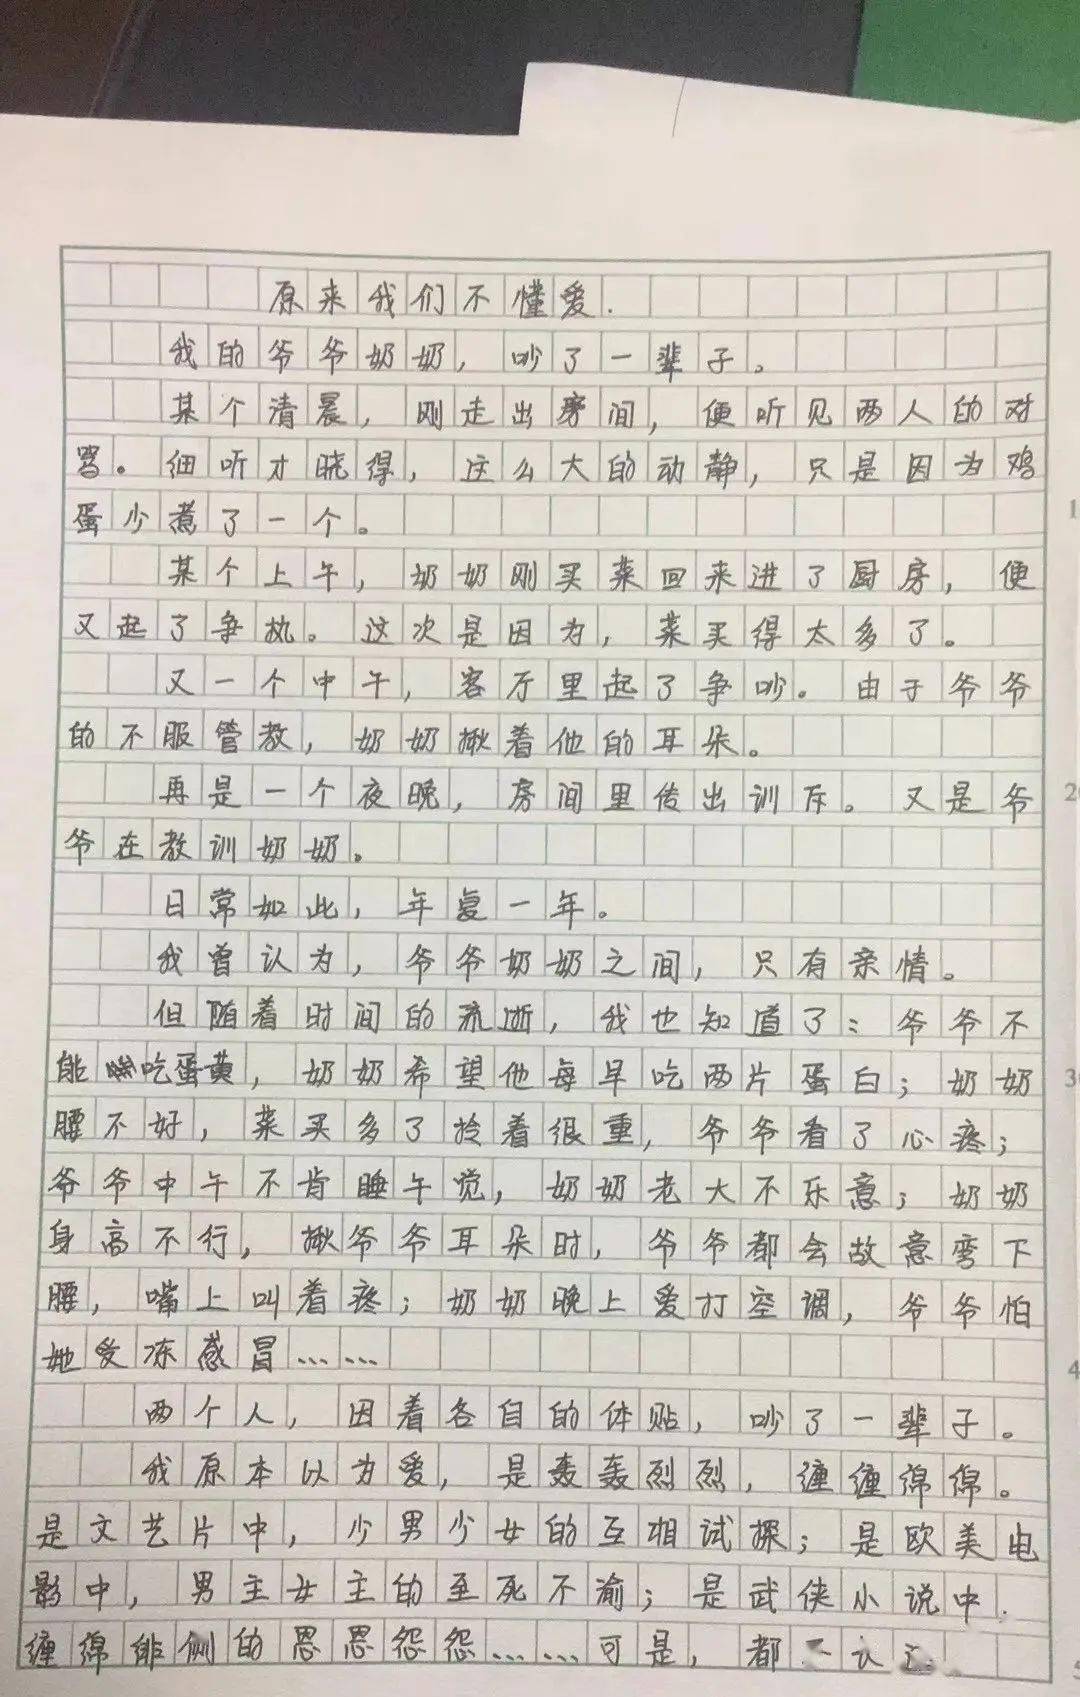 原来我们不懂爱.
我的爷爷奶奶，吵了一辈子。
某个清晨，刚走出房间，便听见两人的对
骂。细听才晓得，这么大的动静，只是因为鸡
蛋少煮了一个。
某个上午，奶奶刚买菜回来进了厨房，便
又起了争执。这次是因为，菜买得太多了。
又一个中午，客厅里起了争吵。由于爷爷
的不服管教，奶奶揪着他的耳朵。
再是一个夜晚，房间里传出训斥。又是爷
爷在教训奶奶。
日常如此，年复一年。
我曾认为，爷爷奶奶之间，只有亲情。
但随着时间的流逝，我也知道了：爷爷不
能吃蛋黄，奶奶希望他每早吃两片蛋白；奶奶
腰不好，菜买多了拎着很重，爷爷看了心疼；
爷爷中午不肯睡午觉，奶奶老大不乐意；奶奶
身高不行，揪爷爷耳朵时，爷爷都会故意弯下
腰，嘴上叫着疼；奶奶晚上爱打空调，爷爷怕
她受冻感冒……
两个人，因着各自的体贴，吵了一辈子。
我原本以为爱，是轰轰烈烈，缠缠绵绵。
是文艺片中，少男少女的互相试探；是欧美电
影中，男主女主的至死不渝；是武侠小说中.
缠绵俳侧的恩恩怨怨……可是，都
1
2
3
4
5